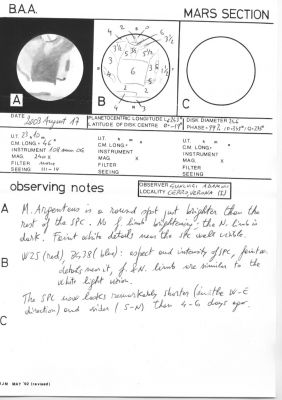 B.A.A.
MARS SECTION
A
B
C
DATE 2003 August 17
PLANETOCENTRIC LONGITUDE Ls
LATITUDE OF DISK CENTRE
DISK DIAMETER
PHASE
U.T. 23 10 m
CM. LONG= 46°
INSTRUMENT 108 mm OG
MAG.
FILTER none
SEEING III-IV
U.T. h m
CM. LONG= °
INSTRUMENT
MAG. X
FILTER
SEEING
U.T. h m
CM. LONG= °
INSTRUMENT
MAG. X
FILTER
SEEING
observing notes
OBSERVER GIANLUIGI ADAMOLI
LOCALITY VERONA (I)
A
M. Argenteus is a round spot just brighter than the
rest of the SPC. No f. limb brightening, the N. limb is
dark. Faint white details near the SPC well visible.
B
W25 (red), (blue): aspect and intensity of SPC,
details near it, f. & N. limbs are similar to the
white light
The SPC now looks remarkably shorter (in the W-E
direction) and (S-N) than 4-6 days ago.
C
MAY '92 (revised)